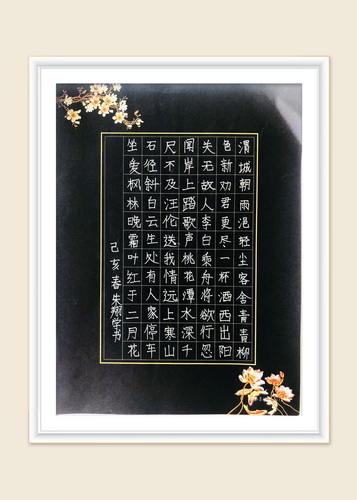 渭城朝雨浥轻尘客舍青青柳
色新劝君更尽一杯酒西出阳
关无故人李白乘舟将欲行忽
闻岸上踏歌声桃花潭水深千
尺不及汪伦送我情远上寒山
石径斜白云生处有人家停车
坐爱枫林晚霜叶红于二月花
己亥春朱翔学书